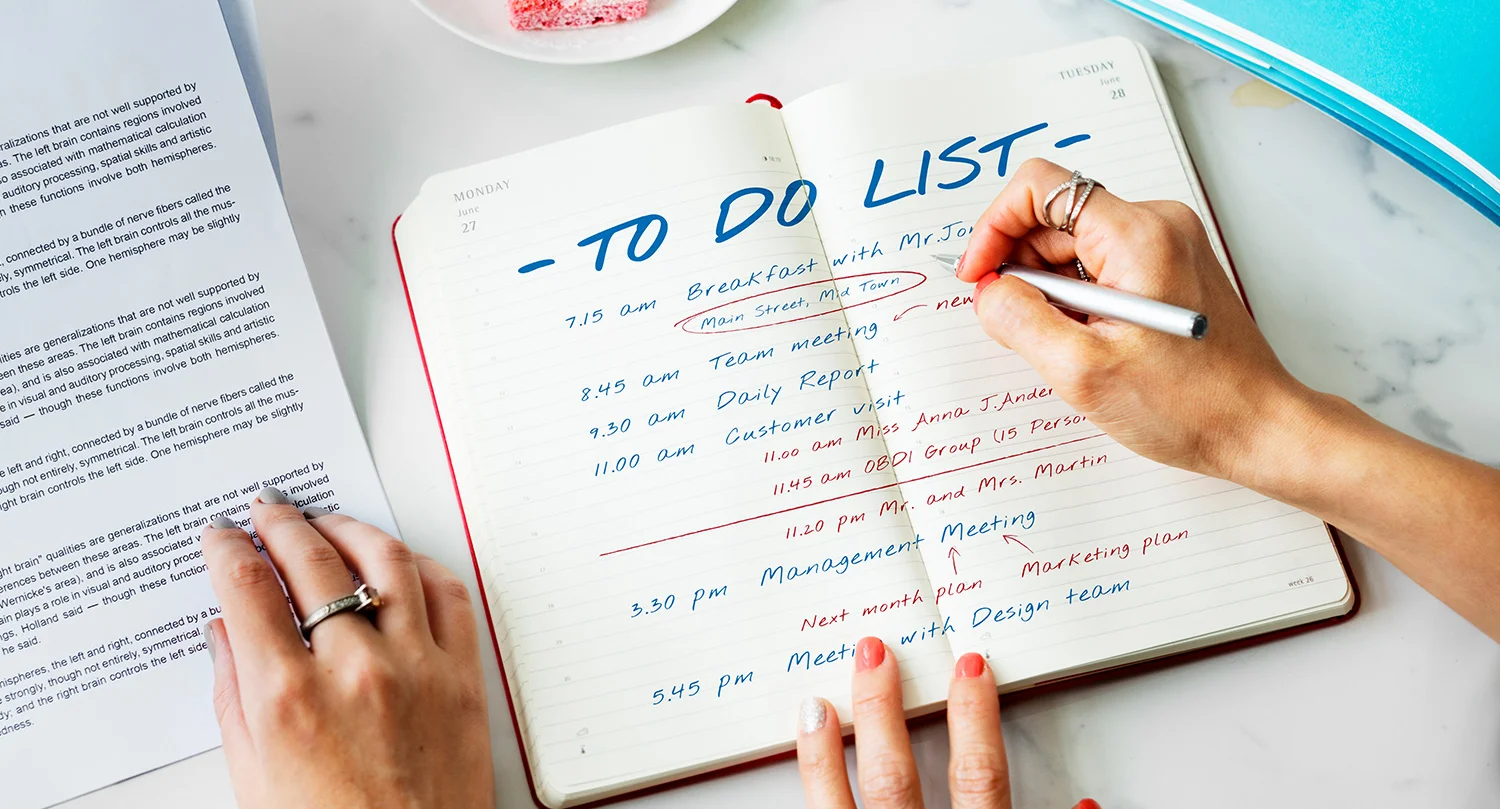 ralizations that are not well supported by
as. The left brain contains regions involved
so associated with mathematical calculation
auditory processing, spatial skills and artistic
these functions involve both hemispheres.
connected by a bundle of nerve fibers called the
ly, symmetrical. The left brain controls all the mus-
trols the left side. One hemisphere may be slightly
lities are generalizations that are not well supported by
een these areas. The left brain contains regions involved
ea), and is also associated with mathematical calculation
e in visual and auditory processing, spatial skills and artistic
said — though these functions involve both hemispheres.
e left and right, connected by a bundle of nerve fibers called the
ough not entirely, symmetrical. The left brain controls
ight brain controls the left side. One hemisphere may be slightly
ght brain" qualities are generalizations that are not well supported by
erences between these areas. The left brain contains involved
Wernicke's area), and is also associated calculation
ain plays a role in visual and auditory process
ngs, Holland said — though these function
he said.
mispheres, the left and right, connected by a bu
strongly, though not entirely, symmetrical.
dy; and the right brain controls the left side
edness.
MONDAY
June
27
TUESDAY
June
28
- TO DO LIST -
7.15 am Breakfast with Mr.Jon
Main Street, Mid Town
new
8.45 am Team meeting
9.30 am Daily Report
11.00 am Customer visit
11.00 am Miss Anna J.Ander
11.45 am OBDI Group (15 Perso
11.20 pm Mr. and Mrs. Martin
3.30 pm Management Meeting
Next month plan Marketing plan
5.45 pm Meeti with Design team
week 26